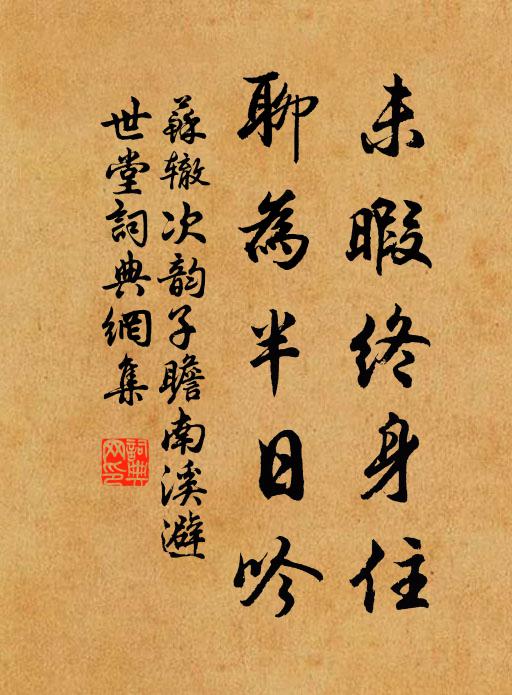 未暇終身住
聊為半日吟
蘇辙次韵子瞻南溪避
世堂詞典網集
詞典网印